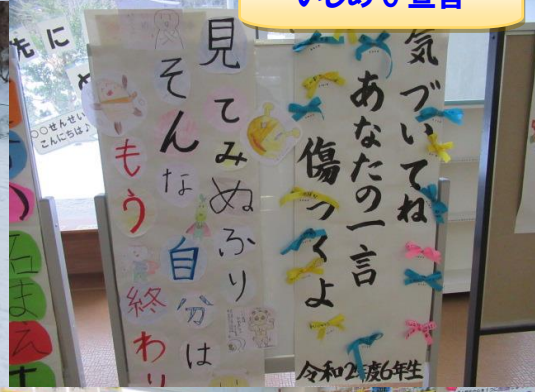 いじめ0宣言
気づいてね
あなたの一言
傷つくよ
令和2年度6年生
見てみぬふり
そんな自分は
もう終わり
先に
○○せんせい
こんにちは♪